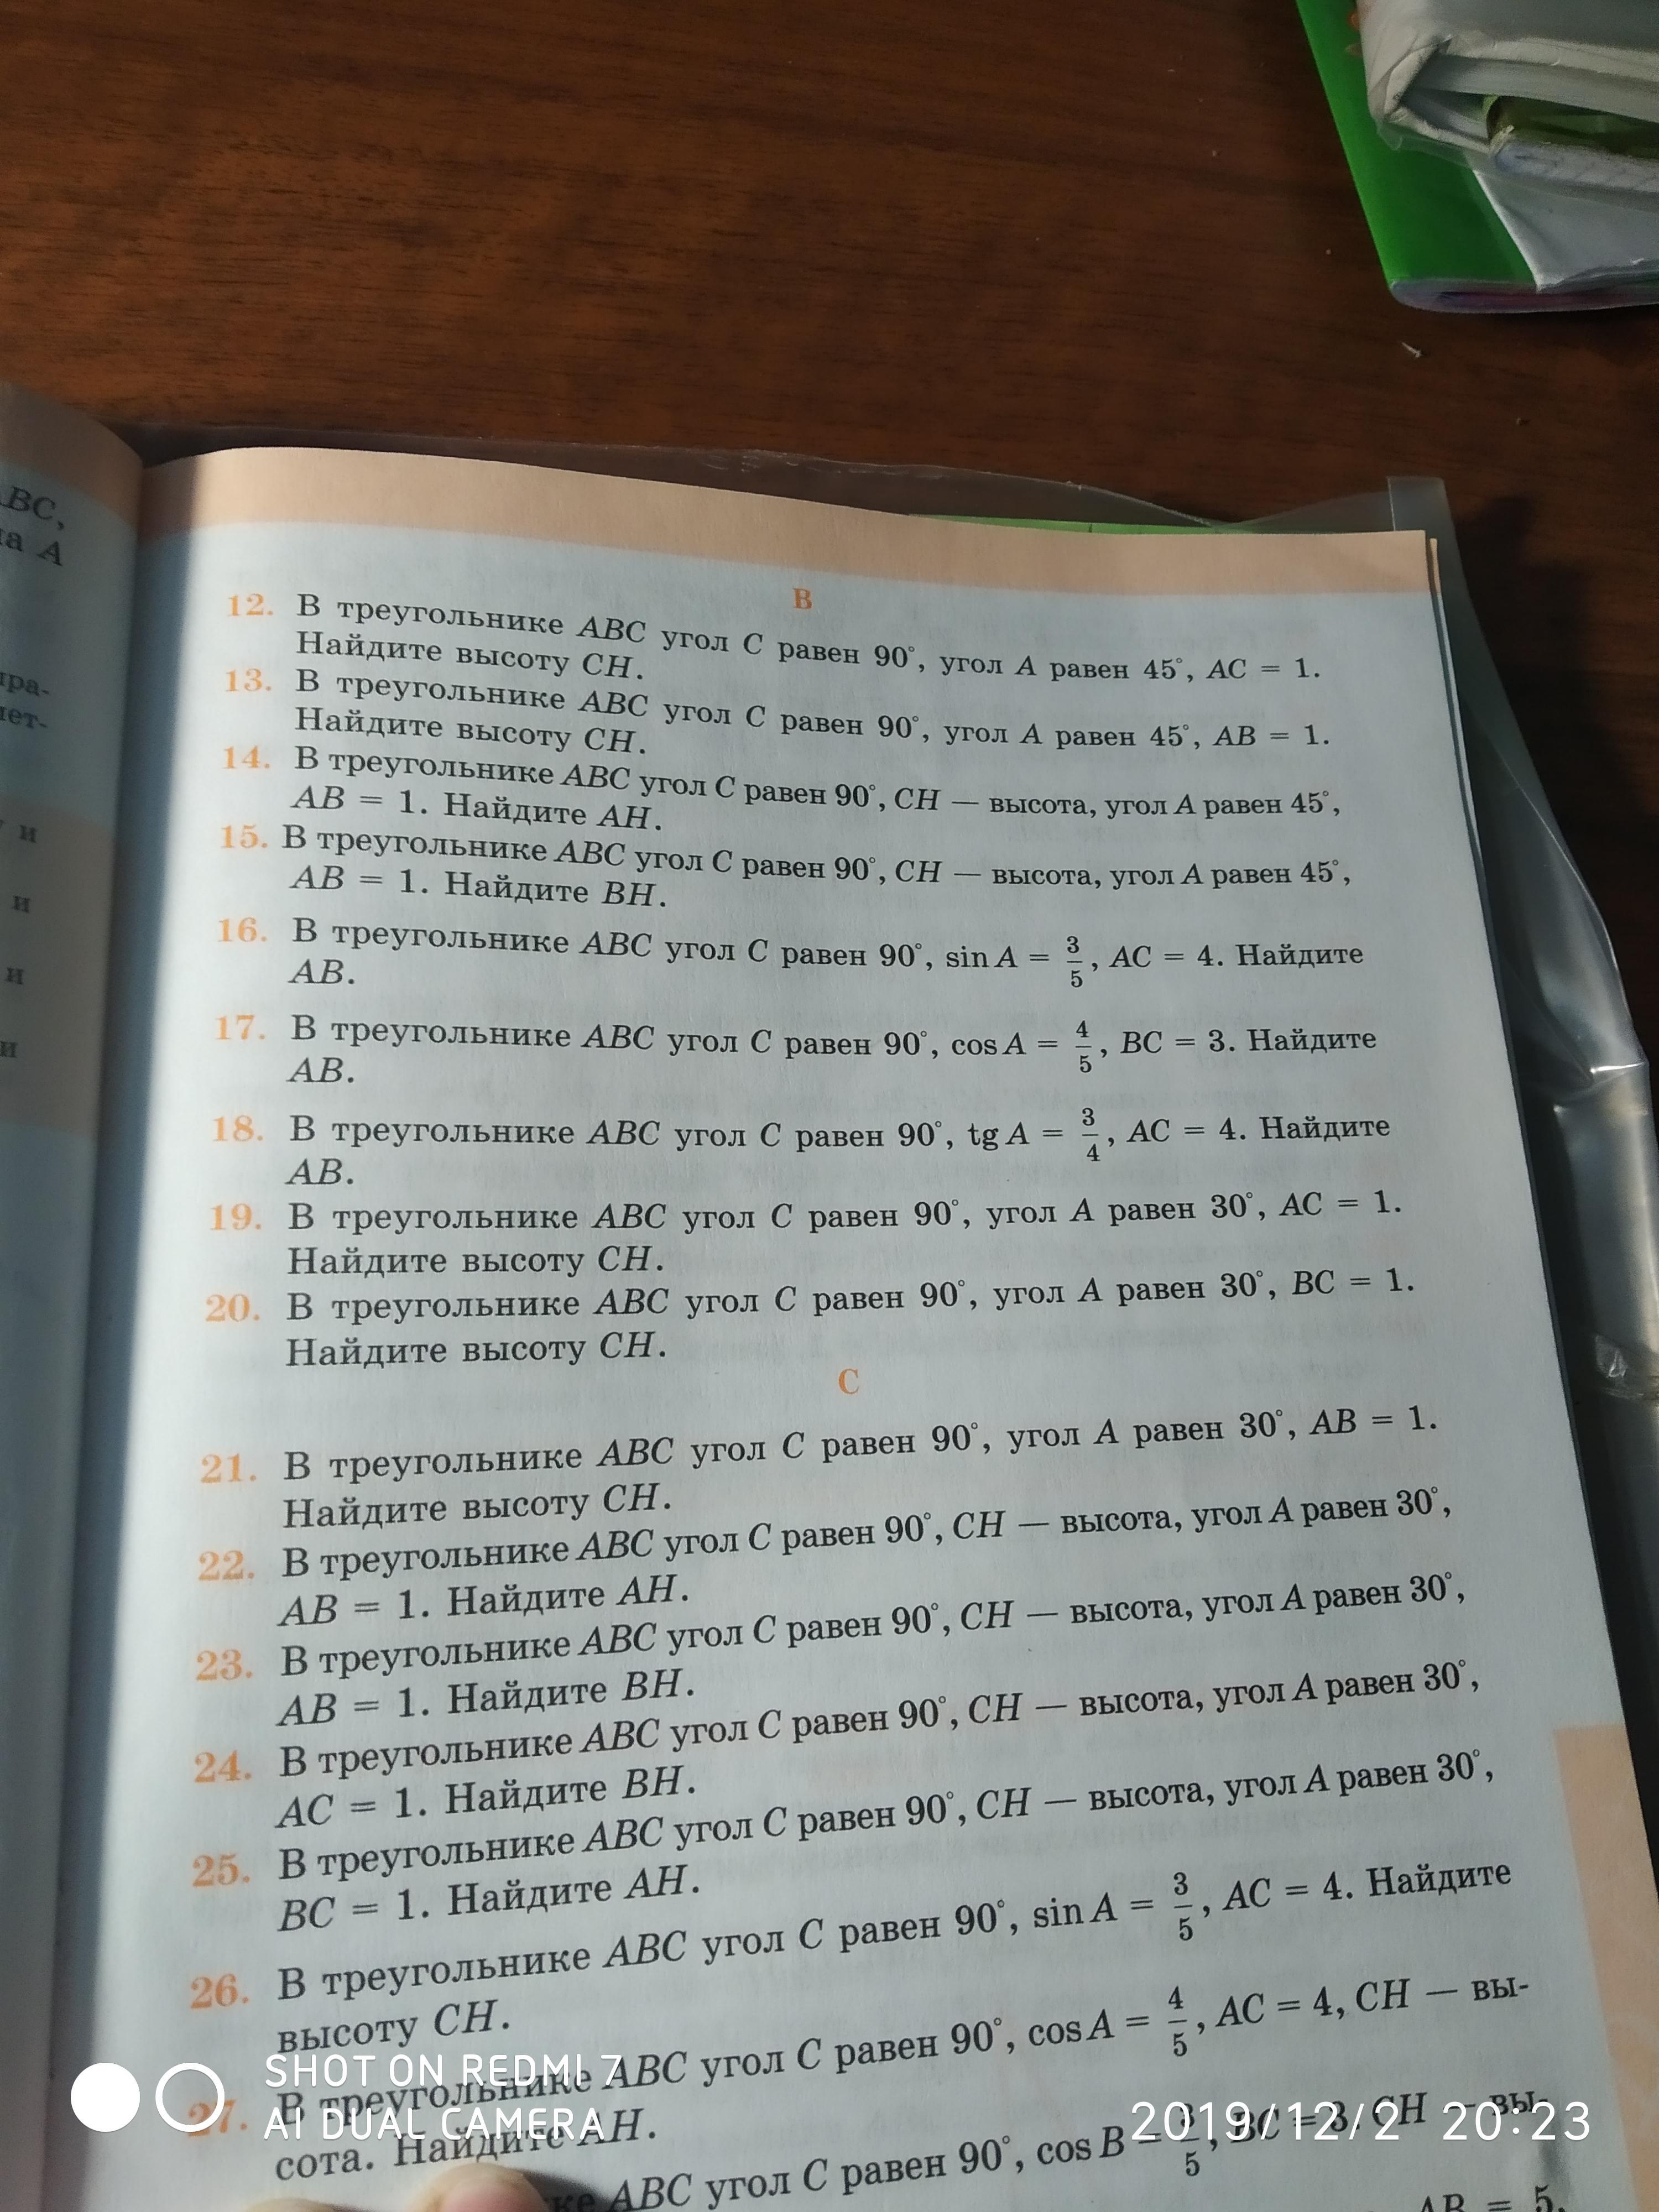 АВС,
на А
пра-
лет-
и
и
и
и
В
12. В треугольнике ABC угол C равен 90°, угол A равен 45°, AC = 1.
Найдите высоту CH.
13. В треугольнике ABC угол C равен 90°, угол A равен 45°, AB = 1.
Найдите высоту CH.
14. В треугольнике ABC угол C равен 90°, CH — высота, угол A равен 45°,
AB = 1. Найдите AH.
15. В треугольнике ABC угол C равен 90°, CH — высота, угол A равен 45°,
AB = 1. Найдите BH.
16. В треугольнике ABC угол C равен 90°, sin A = 3/5, AC = 4. Найдите
AB.
17. В треугольнике ABC угол C равен 90°, cos A = 4/5, BC = 3. Найдите
AB.
18. В треугольнике ABC угол C равен 90°, tg A = 3/4, AC = 4. Найдите
AB.
19. В треугольнике ABC угол C равен 90°, угол A равен 30°, AC = 1.
Найдите высоту CH.
20. В треугольнике ABC угол C равен 90°, угол A равен 30°, BC = 1.
Найдите высоту CH.
С
21. В треугольнике ABC угол C равен 90°, угол A равен 30°, AB = 1.
Найдите высоту CH.
22. В треугольнике ABC угол C равен 90°, CH — высота, угол A равен 30°,
AB = 1. Найдите AH.
23. В треугольнике ABC угол C равен 90°, CH — высота, угол A равен 30°,
AB = 1. Найдите BH.
24. В треугольнике ABC угол C равен 90°, CH — высота, угол A равен 30°,
AC = 1. Найдите BH.
25. В треугольнике ABC угол C равен 90°, CH — высота, угол A равен 30°,
BC = 1. Найдите AH.
26. В треугольнике ABC угол C равен 90°, sin A = 3/5, AC = 4. Найдите
высоту CH.
27. В треугольнике ABC угол C равен 90°, cos A = 4/5, AC = 4, CH — вы-
сота. Найдите AH.
ке ABC угол C равен 90°, cos B = 3/5, BC = 3, CH — вы-
AB = 5,
SHOT ON REDMI 7
AI DUAL CAMERA
2019/12/2 20:23